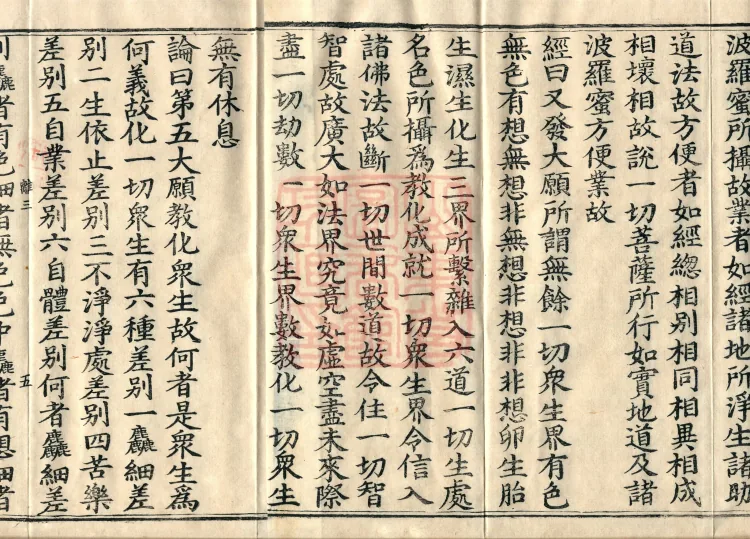 波羅蜜所攝故業者如經諸地所淨生諸助
道法故方便者如經總相別相同相異相成
相壞相故說一切菩薩所行如實地道及諸
波羅蜜方便業故
經曰又發大願所謂無餘一切衆生界有色
無色有想無想非無想非想非非想卵生胎
生濕生化生三界所繫雜入六道一切生處
名色所攝爲教化成就一切衆生界令信入
諸佛法故斷一切世間數道故令住一切智
智處故廣大如法界究竟如虛空盡未來際
盡一切劫數一切衆生界數教化一切衆生
無有休息
論曰第五大願教化衆生故何者是衆生爲
何義故化一切衆生有六種差別一麤細差
別二生依止差別三不淨淨處差別四苦樂
差別五自業差別六自體差別何者麤細差
離三 五
別麤者有色細者無色色中麤者有想細者